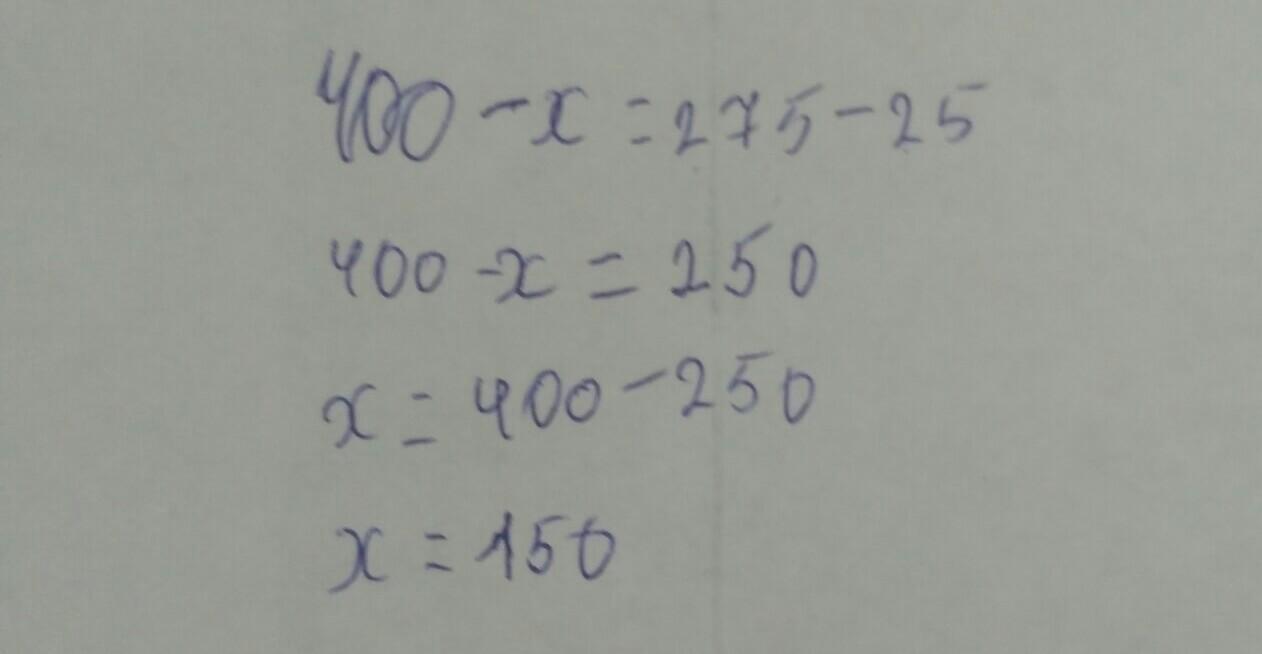 400 - x = 275 - 25
400 - x = 250
x = 400 - 250
x = 150